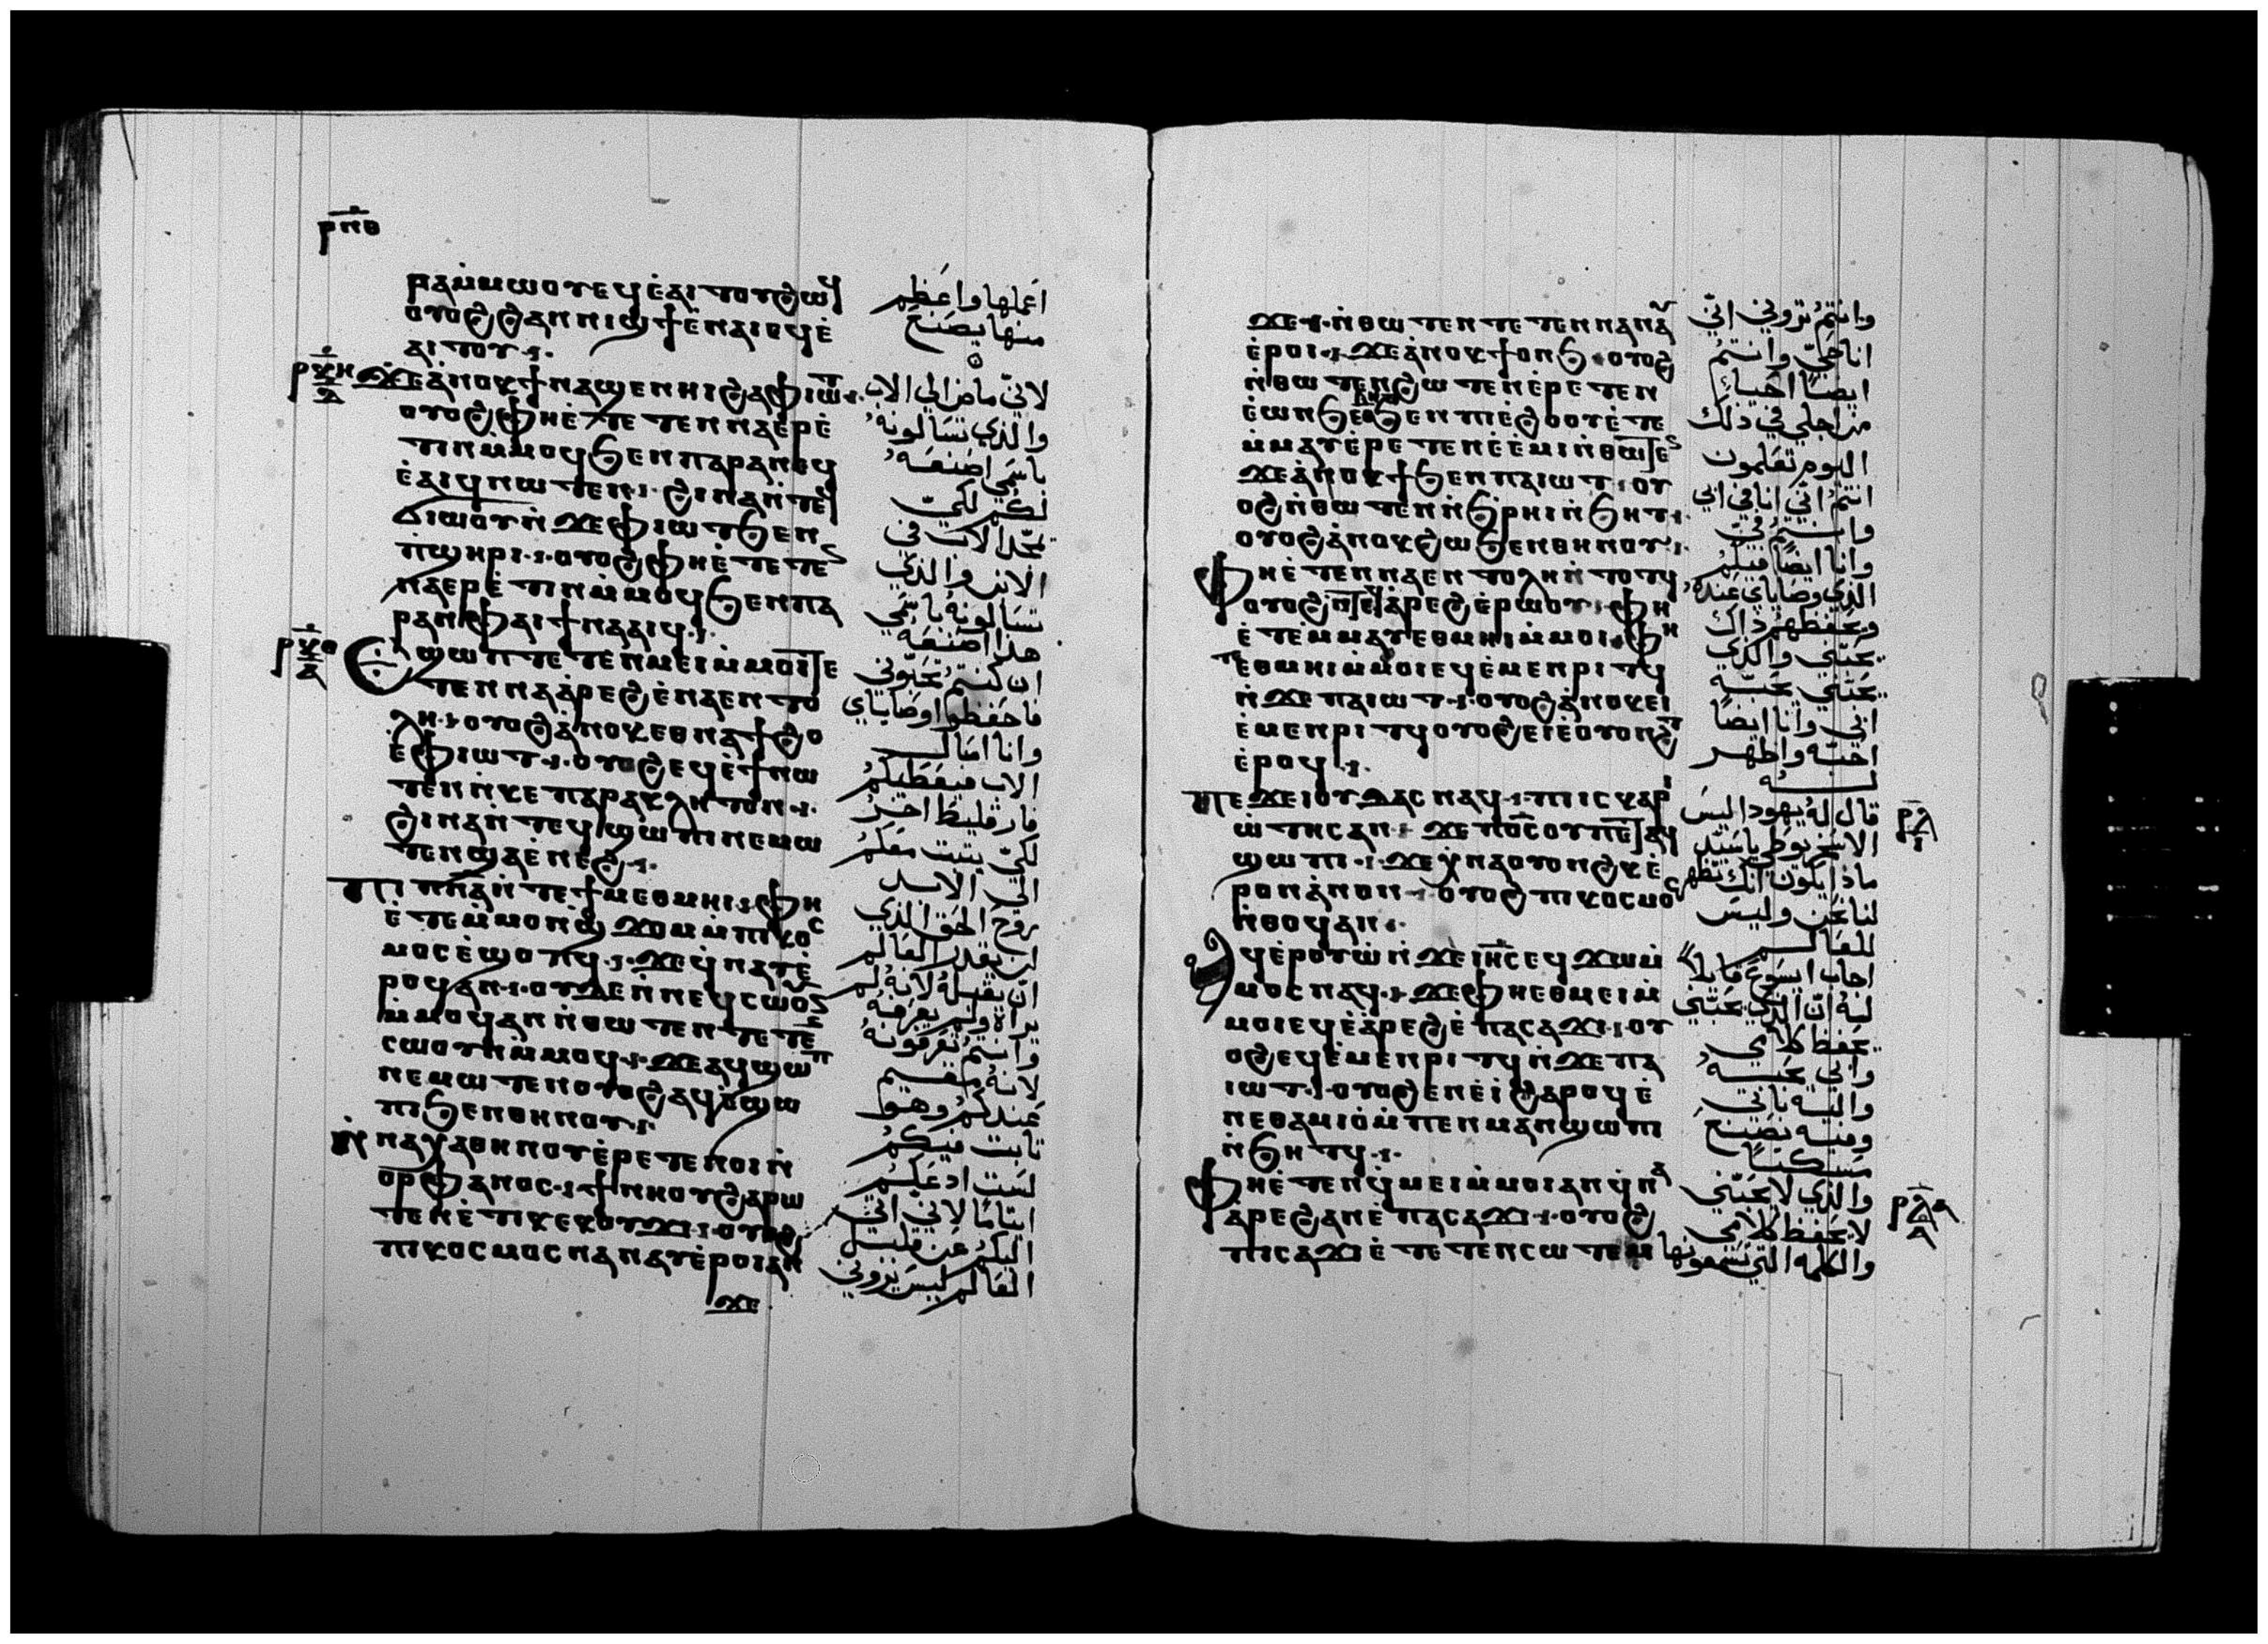 ⲣⲛ̅ⲑ
ⲣⲁⲙ̇ⲙⲱⲟⲩ ⲉϥⲉ̇ⲁⲓⲧⲟⲩ ϩⲱϥ
ⲟⲩⲟϩ ϩⲁⲛⲛⲓϣϯ ⲉ̇ⲛⲁⲓ ⲉϥⲉ̇
ⲁⲓⲧⲟⲩ
ϫⲉ ⲁ̇ⲛⲟⲕ ϯⲛⲁϣⲉⲛⲏⲓ ϩⲁ ⲫⲓⲱⲧ
ⲟⲩⲟϩ ⲫⲏⲉ̇ⲧⲉⲧⲉⲛⲛⲁⲉⲣⲉ̇
ⲧⲓⲛ ⲙ̇ⲙⲟϥ ϧⲉⲛ ⲡⲁⲣⲁⲛ ⲉϥ
ⲉ̇ⲁⲓϥ ⲛⲱⲧⲉⲛ ϩⲓⲛⲁ ⲛ̇ⲧⲉϥ
ϭⲓⲱ̇ⲟⲩ ⲛ̇ϫⲉ ⲫⲓⲱⲧ ϧⲉⲛ
ⲡ̇ϣⲏⲣⲓ ⲟⲩⲟϩ ⲫⲏⲉ̇ⲧⲉⲧⲉⲛ
ⲛⲁⲉⲣⲉ̇ⲧⲓⲛ ⲙ̇ⲙⲟϥ ϧⲉⲛ ⲡⲁ
ⲣⲁⲛ ⲫⲁⲓ ϯⲛⲁⲁⲓϥ
ⲉϣⲱⲡ ⲧⲉⲧⲉⲛⲙⲉⲓ ⲙ̇ⲙⲟⲓ ⲉ
ⲧⲉⲛⲛⲁⲁ̇ⲣⲉϩ ⲉ̇ⲛⲁⲉⲛⲧⲟ
ⲗⲏ ⲟⲩⲟϩ ⲁ̇ⲛⲟⲕ ⲉⲑⲛⲁϯϩⲟ
ⲉ̇ⲫⲓⲱⲧ ⲟⲩⲟϩ ⲉϥⲉ̇ϯ ⲛⲱ
ⲧⲉⲛ ⲛ̇ⲕⲉⲡⲁⲣⲁⲕⲗⲏⲧⲟⲛ
ϩⲓⲛⲁ ⲛ̇ⲧⲉϥϣⲱⲡⲓ ⲛⲉⲙⲱ
ⲧⲉⲛ ϣⲁⲉ̇ⲛⲉϩ
ⲡⲓⲡⲛ̅ⲁ ⲛ̇ⲧⲉ ϯⲙⲉⲑⲙⲏⲓ ⲫⲏ
ⲉ̇ⲧⲉ ⲙ̇ⲙⲟⲛ ⲛ̇ϣϫⲟⲙ ⲙ̇ⲡⲓⲕⲟⲥ
ⲙⲟⲥ ⲉ̇ϣⲟⲡϥ ϫⲉ ϥ̇ⲛⲁⲩ ⲉ̇
ⲣⲟϥ ⲁⲛ ⲟⲩⲇⲉ ⲛ̇ⲛⲉϥⲥⲱⲟⲩⲛ
ⲙ̇ⲙⲟϥ ⲁⲛ ⲛ̇ⲑⲱⲧⲉⲛ ⲧⲉⲧⲉⲛ
ⲥⲱⲟⲩⲛ ⲙ̇ⲙⲟϥ ϫⲉ ⲁϥϣⲱⲡ
ⲛⲉⲙⲱⲧⲉⲛ ⲟⲩⲟϩ ⲁϥϣⲱ
ⲡⲓ ϧⲉⲛ ⲑⲏⲛⲟⲩ
ϯⲛⲁⲭⲁ ⲑⲏⲛⲟⲩ ⲉ̇ⲣⲉⲧⲉⲛⲟⲓ ⲛ̇
ⲟⲣⲫⲁⲛⲟⲥ ϯⲛⲏⲟⲩ ϩⲁⲣⲱ
ⲧⲉⲛ ⲉ̇ⲧⲓ ⲕⲉⲕⲟⲩϫⲓ ⲟⲩⲟϩ
ⲡⲓⲕⲟⲥⲙⲟⲥ ⲛⲁⲛⲁⲩ ⲉ̇ⲣⲟⲓ ⲁⲛ
ϫⲉ
اعملها واعظم
منها يصنع
لانّي ماض الي الاب
والذي تسالونه
باسمي اصنعه
لكم لكي
يتمجد الاب في
الابن والذي
تسالونه باسمي
هذا اصنعه
ان كنتم تحبّوني
فاحفظوا وصاياي
وانا اسال
الاب فيعطيكم
فارقليط اخر
لكي يثبت معكم
الي الابد
روح الحق الذي
لن يقدر العالم
ان يقبله لانه لم
يراه ولم يعرفه
وانتم تعرفونه
لانه مقيم
عندكم وهو
ثابت فيكم
لست ادعكم
ايتاما لاني اتي
اليكم عن قليل
العالم ليس يروني
ϫⲉ ⲛ̇ⲑⲱⲧⲉⲛ ⲧⲉⲧⲉⲛⲛⲁⲛⲁⲩ
ⲉ̇ⲣⲟⲓ ϫⲉ ⲁ̇ⲛⲟⲕ ϯⲟⲛϧ ⲟⲩⲟϩ
ⲛ̇ⲑⲱⲧⲉⲛ ϩⲱⲧⲉⲛ ⲉ̇ⲣⲉⲧⲉⲛ
ⲉ̇ⲱⲛϧ ϧⲉⲛ ⲡⲓⲉ̇ϩⲟⲟⲩ ⲉ̇ⲧⲉ
ⲙ̇ⲙⲁⲩ ⲉ̇ⲣⲉⲧⲉⲛⲉ̇ⲉ̇ⲙⲓ ⲛ̇ⲑⲱⲧⲉⲛ
ϫⲉ ⲁ̇ⲛⲟⲕ ϯϧⲉⲛ ⲡⲁⲓⲱⲧ ⲟⲩ
ⲟϩ ⲛ̇ⲑⲱⲧⲉⲛ ⲛ̇ϧⲣⲏⲓ ⲛ̇ϧⲏⲧ
ⲟⲩⲟϩ ⲁ̇ⲛⲟⲕ ϩⲱ ϧⲉⲛ ⲑⲏⲛⲟⲩ
ⲫⲏⲉ̇ⲧⲉ ⲛⲁⲉⲛⲧⲟⲗⲏ ⲛ̇ⲧⲟⲧϥ
ⲟⲩⲟϩ ⲛ̇ⲧⲉϥⲁ̇ⲣⲉϩ ⲉ̇ⲣⲱⲟⲩ ⲫⲏ
ⲉ̇ⲧⲉ ⲙ̇ⲙⲁⲩ ⲉⲑⲙⲏⲓ ⲙ̇ⲙⲟⲓ ⲫⲏ
ⲉⲑⲙⲏⲓ ⲙ̇ⲙⲟⲓ ⲉϥⲉ̇ⲙⲉⲛⲣⲓⲧϥ
ⲛ̇ϫⲉ ⲡⲁⲓⲱⲧ ⲟⲩⲟϩ ⲁ̇ⲛⲟⲕ ⲉⲓ
ⲉ̇ⲙⲉⲛⲣⲓⲧϥ ⲟⲩⲟϩ ⲉⲓⲉ̇ⲟⲩⲟⲛϩⲧ
ⲉ̇ⲣⲟϥ
ⲡⲉϫⲉ ⲓⲟⲩⲇⲁⲥ ⲛⲁϥ ⲡⲓⲓⲥⲕⲁⲣⲓ
ⲱ̇ⲧⲏⲥ ⲁⲛ ϫⲉ ⲡⲟ̅ⲥ ⲟⲩ ⲡⲉ ⲉⲧⲁϥ
ϣⲱⲡⲓ ϫⲉ ⲭ̇ⲛⲁⲟⲩⲟⲛϩⲕ ⲉ̇
ⲣⲟⲛ ⲁ̇ⲛⲟⲛ ⲟⲩⲟϩ ⲡⲓⲕⲟⲥⲙⲟⲥ
ⲛ̇ⲑⲟϥ ⲁⲛ
ⲁϥⲉ̇ⲣⲟⲩⲱ̇ ⲛ̇ϫⲉ ⲓⲏ̅ⲥ ⲉϥϫⲱ ⲙ̇
ⲙⲟⲥ ⲛⲁϥ ϫⲉ ⲫⲏⲉⲑⲙⲉⲓ ⲙ̇
ⲙⲟⲓ ⲉϥⲉ̇ⲁ̇ⲣⲉϩ ⲉ̇ⲡⲁⲥⲁϫⲓ ⲟⲩ
ⲟϩ ⲉϥⲉ̇ⲙⲉⲛⲣⲓⲧϥ ⲛ̇ϫⲉ ⲡⲁ
ⲓⲱⲧ ⲟⲩⲟϩ ⲉⲛⲉ̇ⲓ̇ ϩⲁⲣⲟϥ ⲉ̇
ⲛⲉⲑⲁⲙⲓⲟ̇ ⲙ̇ⲡⲉⲛⲙⲁⲛϣⲱⲡⲓ
ⲛ̇ϧⲏⲧϥ
ⲫⲏⲉ̇ⲧⲉⲛϥ̇ⲙⲉⲓ ⲙ̇ⲙⲟⲓ ⲁⲛ ϥ̇ⲛⲁ
ⲁ̇ⲣⲉϩ ⲁⲛ ⲉ̇ⲡⲁⲥⲁϫⲓ ⲟⲩⲟϩ
ⲡⲓⲥⲁϫⲓ ⲉ̇ⲧⲉⲧⲉⲛⲥⲱⲧⲉⲙ
وانتم تروني انّي
انا حيّ وانتم
ايضا احياء
من اجلي في ذلك
اليوم تعلمون
انتم انّي انا في ابي
وانتم فيّ
وانا ايضا فيكم
الذي وصاياي عنده
ويحفظهم ذاك
يحبّني والذي
يحبّني يحبّه
ابي وانا ايضا
احبّه واظهر
له
قال له يهودا ليس
الاسخريوطي ياسيّد
ماذا يكون انّك تظهر
لنا نحن وليس
للعالم
اجاب ايسوع قايلا
له انّ الذي يحبّني
يحفظ كلامي
وابي يحبّه
واليه ناتي
وفيه نصنع
مسكنا
والذي لا يحبّني
لا يحفظ كلامي
والكلمه التي تسمعونها